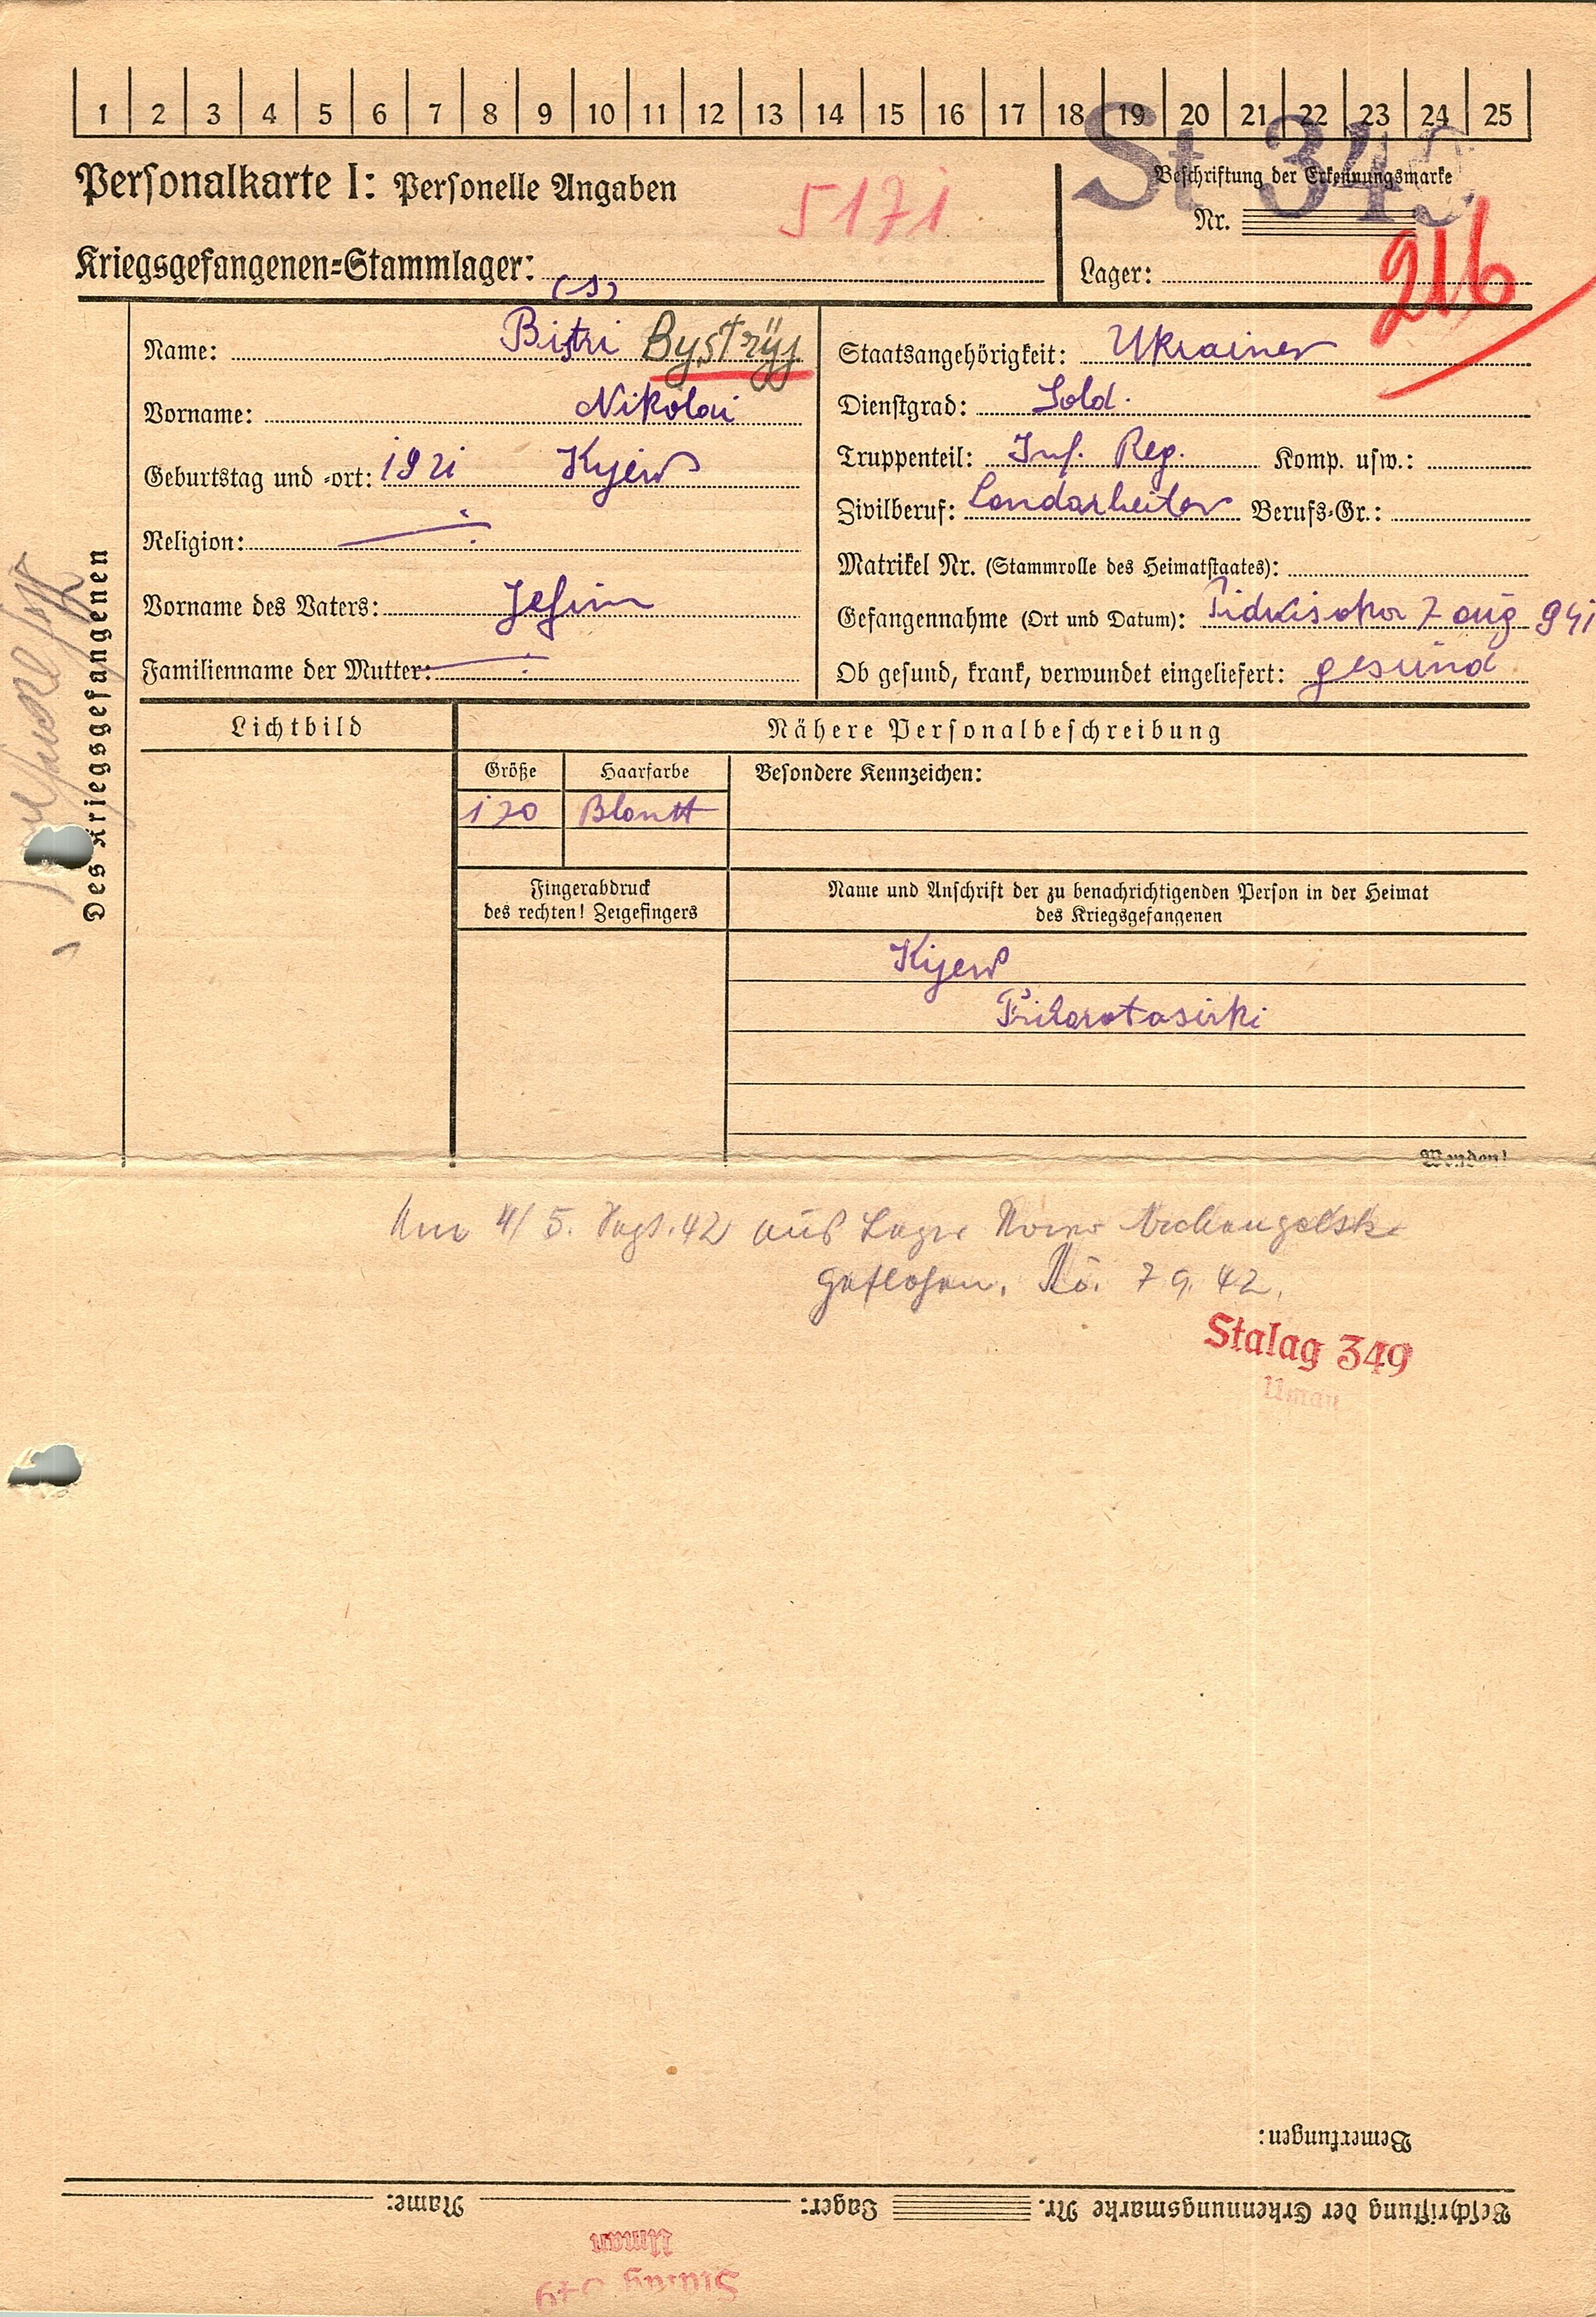 1 2 3 4 5 6 7 8 9 10 11 12 13 14 15 16 17 18 19 20 21 22 23 24 25
St 349
Personalkarte I: Personelle Angaben
5171
Beschriftung der Erkennungsmarke
Nr.
216
Kriegsgefangenen-Stammlager:
Lager:
(1)
Name: Bistri Bystryj
Vorname: Nikolai
Geburtstag und -ort: 1921 Kyjew
Religion:
Vorname des Vaters: Jefim
Familienname der Mutter:
Staatsangehörigkeit: Ukrainer
Dienstgrad: Sold.
Truppenteil: Inf. Reg. Komp. usw.:
Zivilberuf: Landarbeiter Berufs-Gr.:
Matrikel Nr. (Stammrolle des Heimatstaates):
Gefangennahme (Ort und Datum): 7 aug 941
Ob gesund, krank, verwundet eingeliefert: gesund
Des Kriegsgefangenen
Lichtbild
Nähere Personalbeschreibung
Größe Haarfarbe Besondere Kennzeichen:
170 Blontt
Fingerabdruck
des rechten! Zeigefingers
Name und Anschrift der zu benachrichtigenden Person in der Heimat
des Kriegsgefangenen
Kijew
Wenden!
Am 4/5. Sept. 42 aus Lager Nowo Archangelsk
geflohen. Nö. 7 9. 42.
Stalag 349
Uman
Bemerkungen:
Beschriftung der Erkennungsmarke Nr. Lager: Name:
Uman
Stalag 349